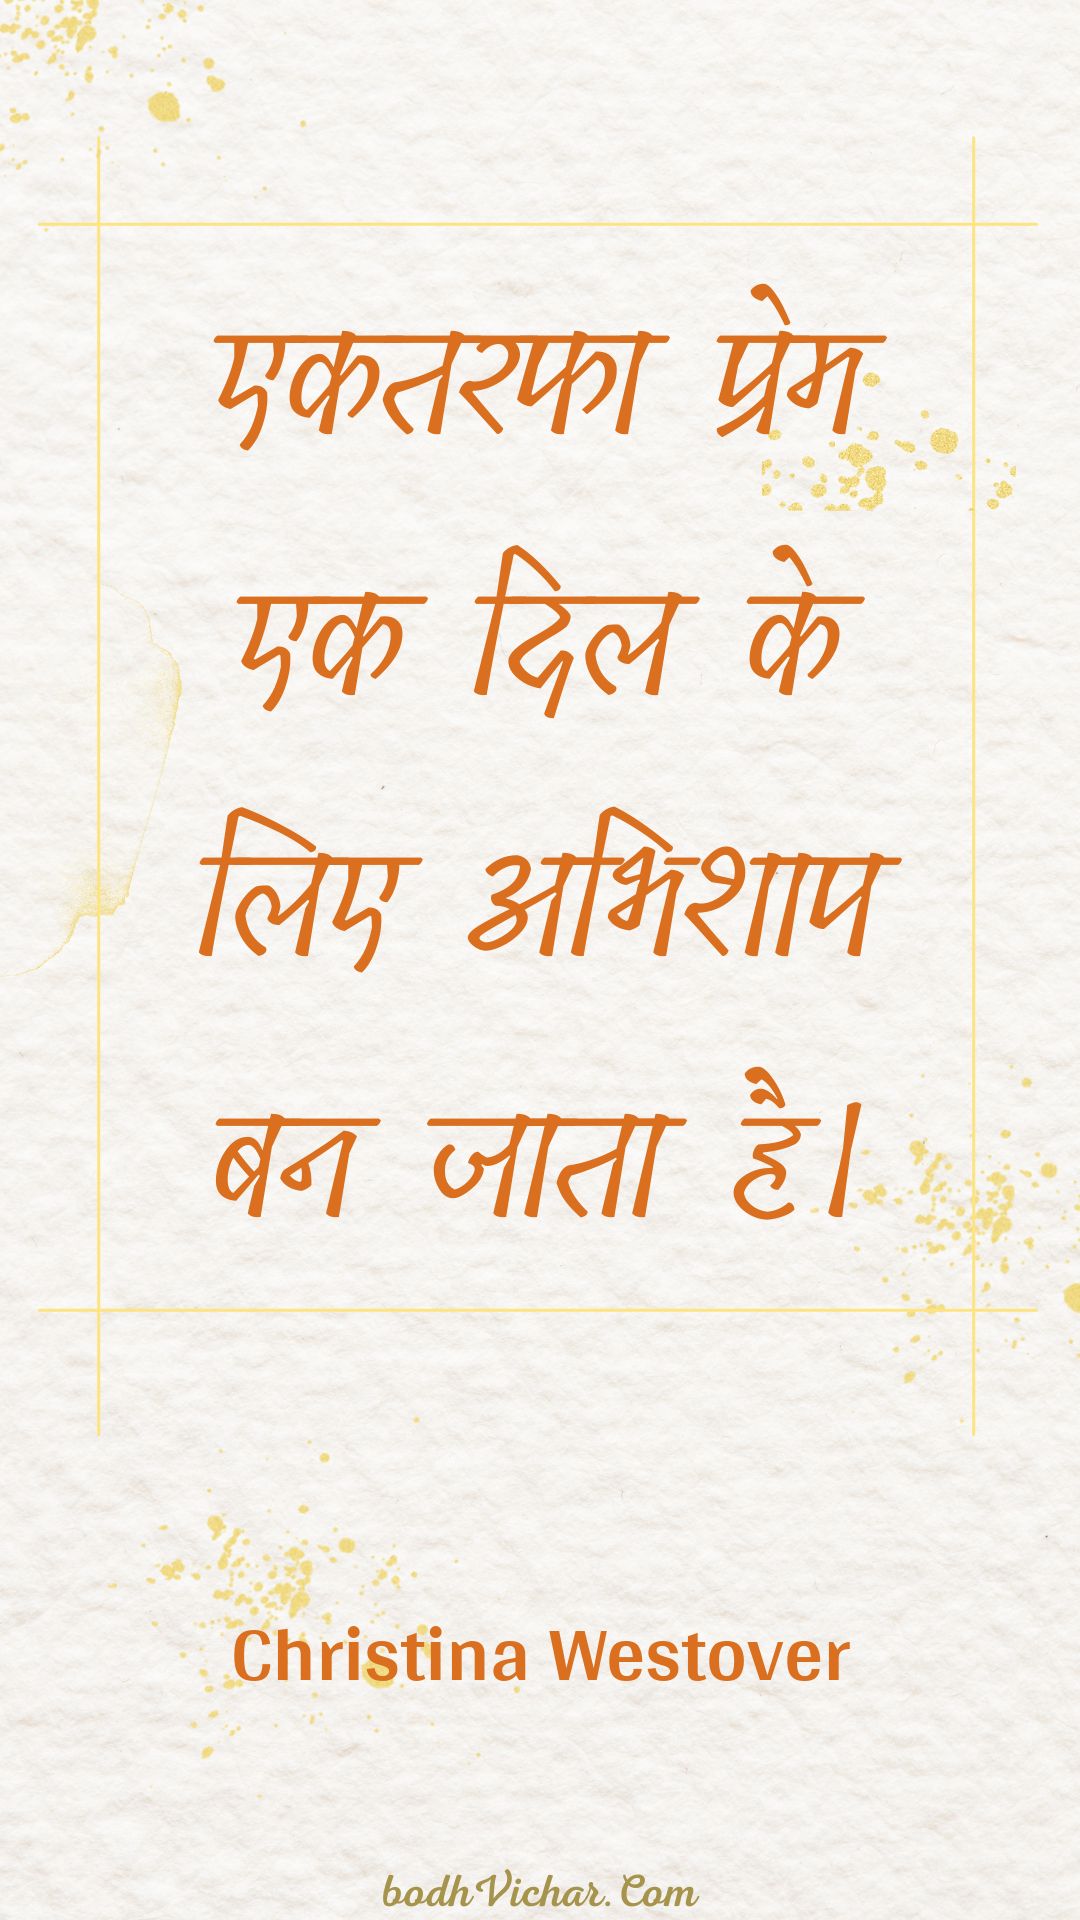 एकतरफा प्रेम
एक दिल के
लिए अभिशाप
बन जाता है।
Christina Westover
bodhVichar.Com